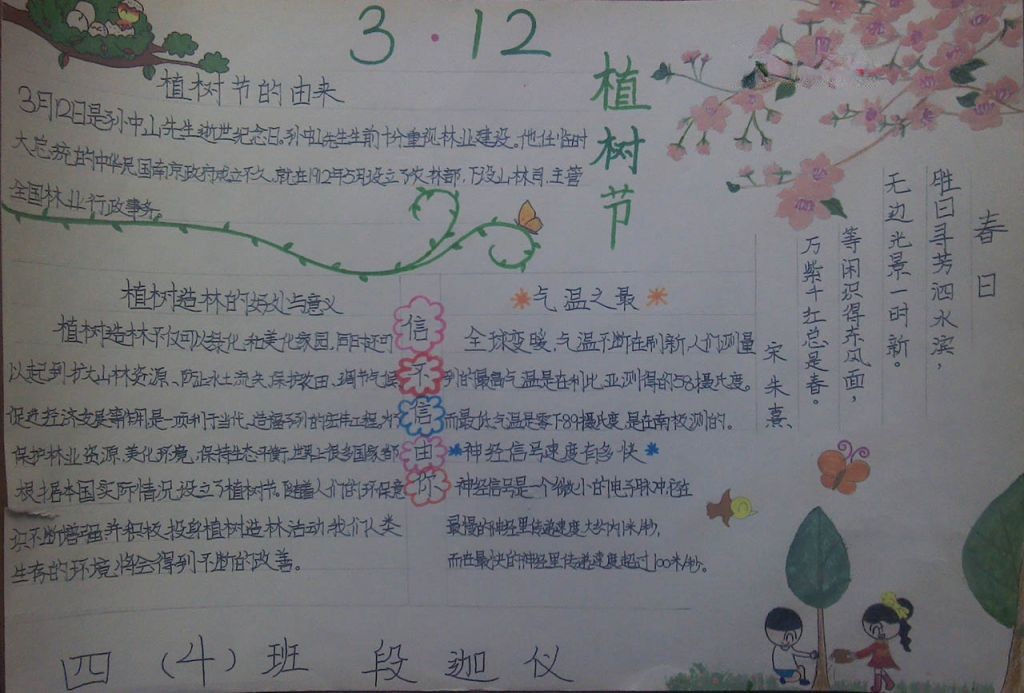 3·12
植树节
植树节的由来
3月12日是孙中山先生逝世纪念日。孙中山先生生前十分重视林业建设。他任临时
大总统的中华民国南京政府成立不久,就在1912年5月设立了农林部,下设山林司,主管
全国林业行政事务。
植树造林的好处与意义
植树造林不仅可以绿化和美化家园,同时还可
以起到扩大山林资源、防止水土流失、保护农田、调节气候
促进经济发展等作用,是一项利于当代、造福子孙的宏伟工程。为了
保护林业资源,美化环境,保持生态平衡,世界上很多国家都
根据本国实际情况设立了植树节。随着人们的环保意
识不断增强,并积极投身植树造林活动,我们人类
生存的环境将会得到不断的改善。
信不信由你
气温之最
全球变暖,气温不断在刷新,人们测量
到的最高气温是在利比亚测得的58摄氏度。
而最低气温是零下89摄氏度,是在南极测的。
神经信号速度有多快
神经信号是一个微小的电子脉冲,它在
最慢的神经里传递速度大约为1米/秒,
而在最快的神经里传递速度超过100米/秒。
春日
胜日寻芳泗水滨,
无边光景一时新。
等闲识得东风面,
万紫千红总是春。
宋朱熹
四(4)班 段迦仪